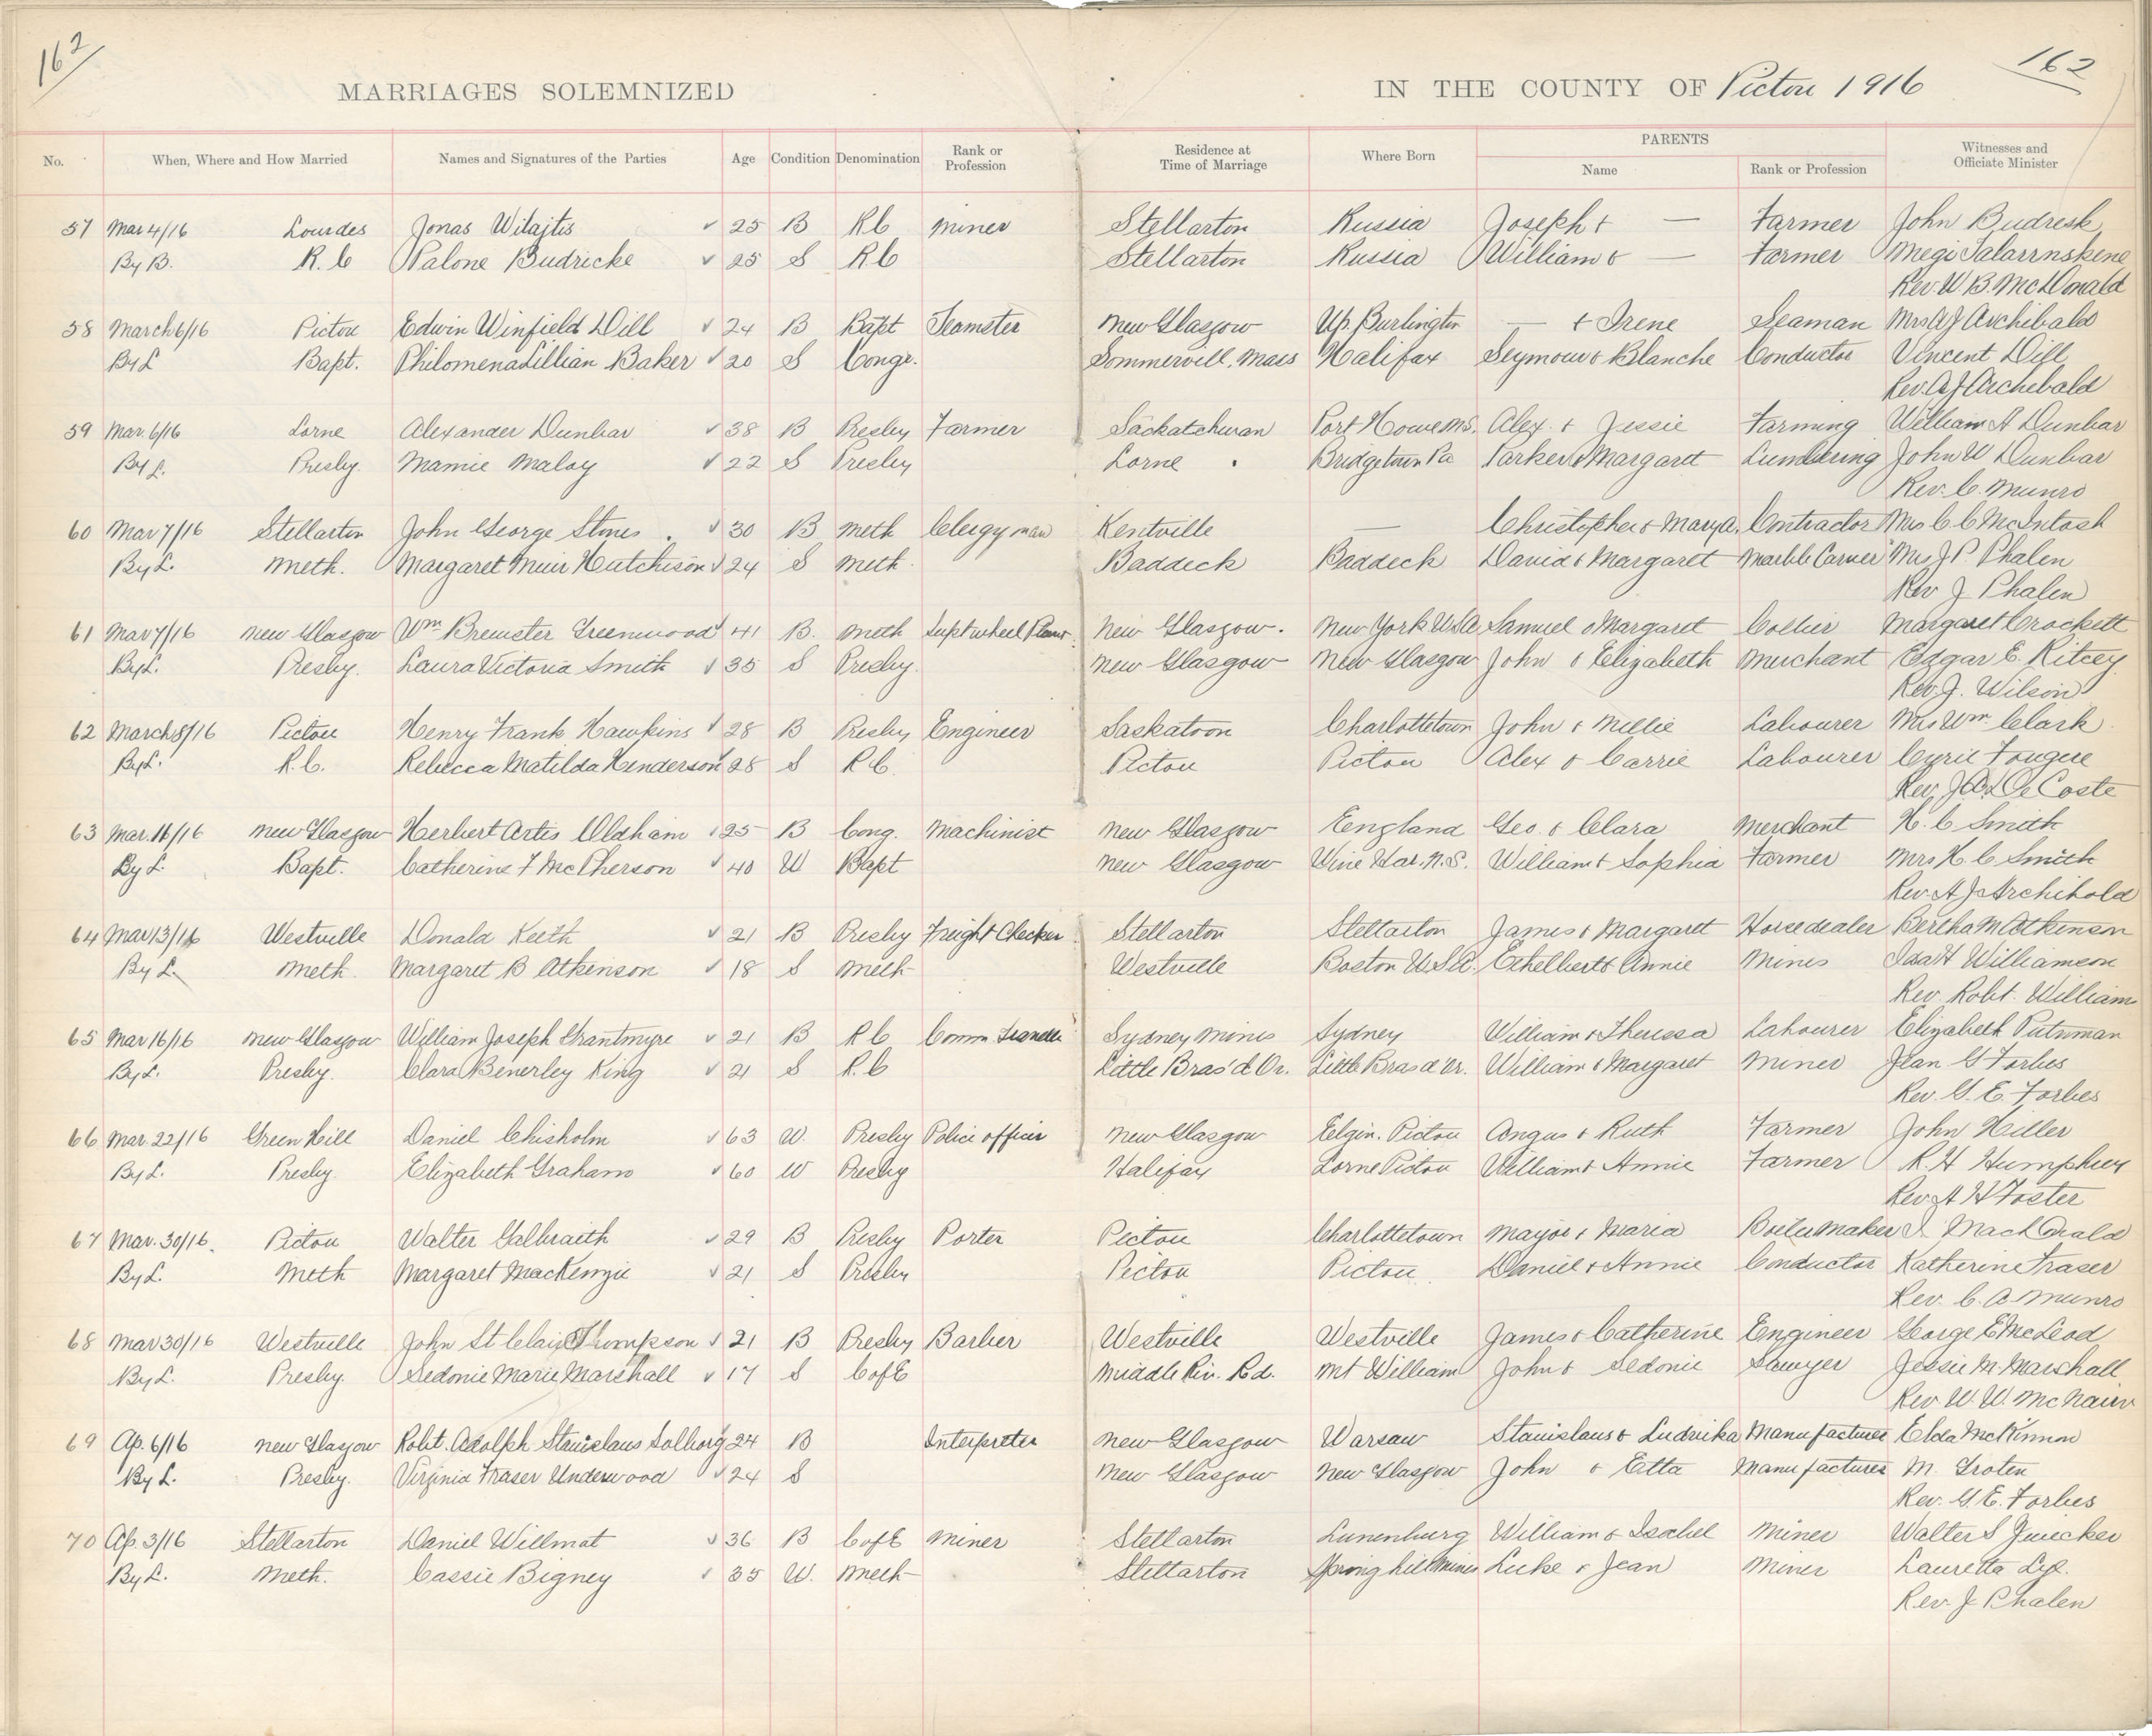 162
162
MARRIAGES SOLEMNIZED IN THE COUNTY OF Pictou 1916
No. When, Where and How Married Names and Signatures of the Parties Age Condition Denomination Rank or Profession Residence at Time of Marriage Where Born PARENTS Name Rank or Profession Witnesses and Officiate Minister
57 Mar 4/16 Lourdes Jonas Witajtis 25 B R C Miner Stellarton Russia Joseph & — Farmer John Budresk
By B. R. C Palone Budricke 25 S R C Stellarton Russia William & — Farmer Megi
Rev. W B. McDonald
58 March 6/16 Pictou Edwin Winfield Dill 24 B Bapt Teamster New Glasgow Up. Burlington — & Irene Seaman Mrs A J Archibald
By L Bapt. Philomena Lillian Baker 20 S Congr. Sommervill, Mass Halifax Seymour & Blanche Conductor Vincent Dill
Rev. A J Archibald
59 Mar. 6/16 Lorne Alexander Dunbar 38 B Presby Farmer Sackatchwan Port Howe N.S. Alex. & Jessie Farming William A Dunbar
By L. Presby. Mamie Maloy 22 S Presby Lorne Bridgetown Pa Parker & Margaret Lumbering John W Dunbar
Rev. C. Munro
60 Mar 7/16 Stellarton John George Stones 30 B Meth Clergyman Kentville — Christopher & Mary A. Contractor Mrs C C McIntosh
By L. Meth. Margaret Muir Hutchison 24 S Meth. Baddeck Baddeck David & Margaret Marble Carver Mrs J. P. Phalen
Rev J Phalen
61 Mar 7/16 New Glasgow Wm Brewster Greenwood 41 B. Meth Supt wheel Plant New Glasgow. New York U.S.A Samuel & Margaret Collier Margaret Crockett
By L. Presby. Laura Victoria Smith 35 S Presby. New Glasgow New Glasgow John & Elizabeth Merchant Edgar E. Ritcey
Rev. J. Wilson
62 March 8/16 Pictou Henry Frank Hawkins 28 B Presby Engineer Saskatoon Charlottetown John & Millie Labourer Mrs Wm. Clark
By L. R. C. Rebecca Matilda Henderson 28 S R C. Pictou Pictou Alex & Carrie Labourer Cyril Fougere
Rev. J A DeCoste
63 Mar. 11/16 New Glasgow Herbert Artis Oldham 25 B Cong. Machinist New Glasgow England Geo. & Clara Merchant H. C Smith
By L. Bapt. Catherine F McPherson 40 W Bapt New Glasgow Wine Har. N.S. William & Sophia Farmer Mrs H C Smith
Rev. A J Archibold
64 Mar 13/16 Westville Donald Keith 21 B Presby Freight Checker Stellarton Stellarton James & Margaret Horsedealer Bertha M Atkinson
By L. Meth. Margaret B Atkinson 18 S Meth Westville Boston U.S.A. Ethelbert & Annie Miner Ida H Williamson
Rev. Robt. William
65 Mar 16/16 New Glasgow William Joseph Grantmyre 21 B R C Comm Traveller Sydney Mines Sydney William & Theressa Labourer Elizabeth Putnman
By L. Presby. Clara Benerley King 21 S R. C Little Bras'd Or. Little Bras d'Or. William & Margaret Miner Jean G Forbes
Rev. G. E. Forbes
66 Mar. 22/16 Green Hill Daniel Chisholm 63 W. Presby Police officer New Glasgow Elgin. Pictou Angus & Ruth Farmer John Hiller
By L. Presby. Elizabeth Graham 60 W Presby Halifax Lorne Pictou William & Annie Farmer R. H Humphrey
Rev A H Foster
67 Mar. 30/16. Pictou Walter Galbraith 29 B Presby Porter Pictou Charlottetown Mayor & Maria Boilermaker I. MacDonald
By L. Meth Margaret MacKenzie 21 S Presby Pictou Pictou Daniel & Annie Conductor Katherine Fraser
Rev. C. A Munro
68 Mar 30/16 Westville John St Clair Thompson 21 B Presby Barber Westville Westville James & Catherine Engineer George E McLeod
By L. Presby. Sedonie Marie Marshall 17 S C of E Middle Riv. Rd. Mt William John & Sedonie Sawyer Jessie M. Marshall
Rev W. W. McNairn
69 Ap. 6/16 New Glasgow Robt. Adolph Stanislaus Solborg 24 B Interpreter New Glasgow Warsaw Stanislaus & Ludvika Manufacturer Elda McKinnon
By L. Presby. Virginia Fraser Underwood 24 S New Glasgow New Glasgow John & Etta Manufacturer M. Groten
Rev. G. E. Forbes
70 Ap. 3/16 Stellarton Daniel Willmot 36 B C of E Miner Stellarton Lunenburg William & Isabel Miner Walter S
By L. Meth. Cassie Bigney 35 W. Meth Stellarton Spring hill Mines Luke & Jean Miner Lauretta
Rev. J Phalen